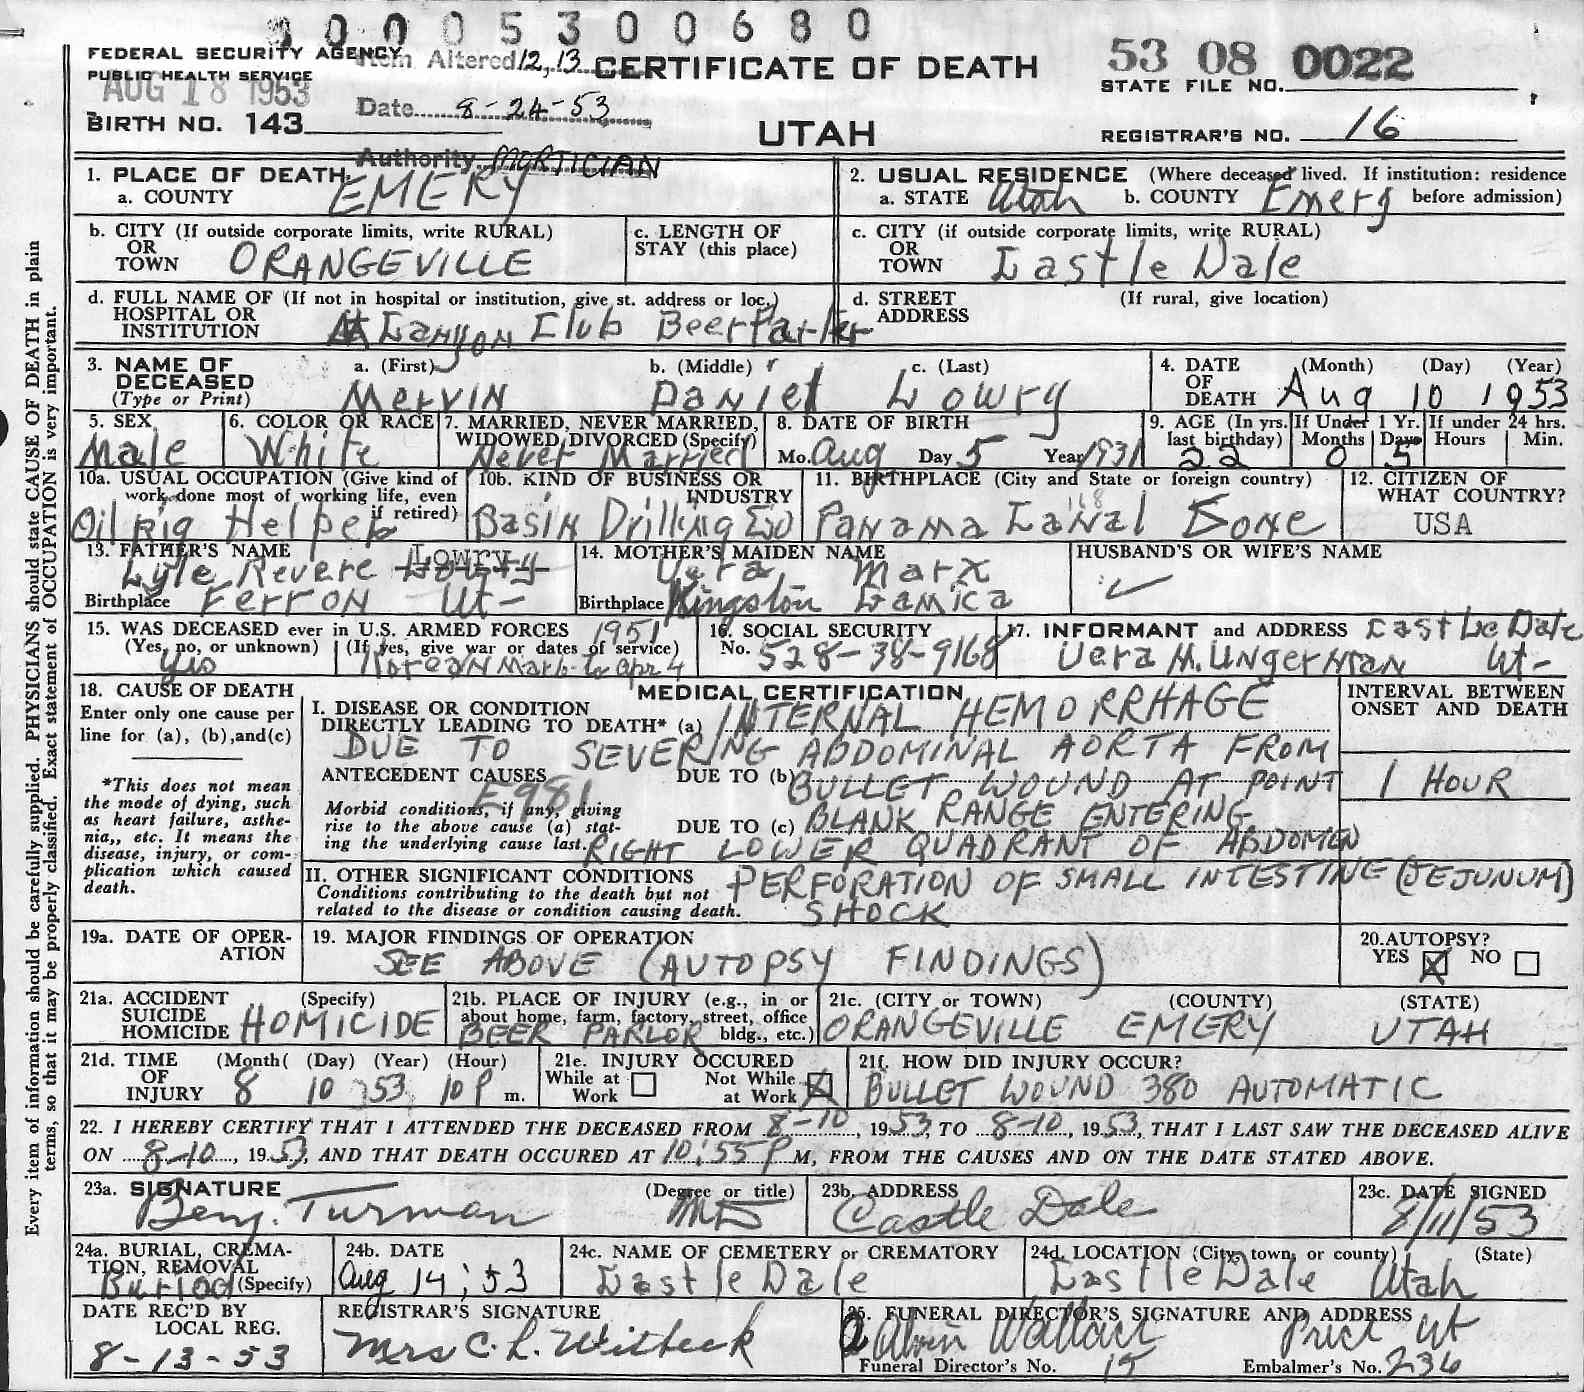 0 0 0 5 3 0 0 6 8 0
FEDERAL SECURITY AGENCY
PUBLIC HEALTH SERVICE
AUG 18 1953
BIRTH NO. 143
Item Altered 12, 13
Date 8-24-53
Authority MORTICIAN
CERTIFICATE OF DEATH
UTAH
53 08 0022
STATE FILE NO.
REGISTRAR'S NO. 16
1. PLACE OF DEATH
a. COUNTY EMERY
2. USUAL RESIDENCE (Where deceased lived. If institution: residence before admission)
a. STATE Utah b. COUNTY Emery
b. CITY (If outside corporate limits, write RURAL) OR TOWN ORANGEVILLE
c. LENGTH OF STAY (this place)
c. CITY (if outside corporate limits, write RURAL) OR TOWN Castle Dale
d. FULL NAME OF (If not in hospital or institution, give st. address or loc.) HOSPITAL OR INSTITUTION At Canyon Club Beer Parler
d. STREET ADDRESS (If rural, give location)
3. NAME OF DECEASED (Type or Print)
a. (First) Mervin b. (Middle) Daniel c. (Last) Lowry
4. DATE OF DEATH (Month) (Day) (Year) Aug 10 1953
5. SEX Male
6. COLOR OR RACE White
7. MARRIED, NEVER MARRIED, WIDOWED, DIVORCED (Specify) Never Married
8. DATE OF BIRTH Mo. Aug Day 5 Year 1931
9. AGE (In yrs. last birthday) 22 If Under 1 Yr. Months 0 Days 5 If under 24 hrs. Hours Min.
10a. USUAL OCCUPATION (Give kind of work done most of working life, even if retired) Oil Rig Helper
10b. KIND OF BUSINESS OR INDUSTRY Basin Drilling Co
11. BIRTHPLACE (City and State or foreign country) Panama Canal Zone
168
12. CITIZEN OF WHAT COUNTRY? USA
13. FATHER'S NAME Lyle Revere Lowry
Birthplace Ferron Ut-
14. MOTHER'S MAIDEN NAME Vera Marx
Birthplace Kingston Jamica
HUSBAND'S OR WIFE'S NAME
15. WAS DECEASED ever in U.S. ARMED FORCES 1951
(Yes, no, or unknown) Yes (If yes, give war or dates of service) Korean Mar 6 to Apr 4
16. SOCIAL SECURITY No. 528-38-9168
17. INFORMANT and ADDRESS Castle Dale
Vera M. Ungerman Ut-
18. CAUSE OF DEATH
Enter only one cause per line for (a), (b), and (c)
*This does not mean the mode of dying, such as heart failure, asthenia,, etc. It means the disease, injury, or complication which caused death.
MEDICAL CERTIFICATION
I. DISEASE OR CONDITION DIRECTLY LEADING TO DEATH* (a) INTERNAL HEMORRHAGE
DUE TO SEVERING ABDOMINAL AORTA FROM
ANTECEDENT CAUSES DUE TO (b) BULLET WOUND AT POINT
E981
Morbid conditions, if any, giving rise to the above cause (a) stating the underlying cause last.
DUE TO (c) BLANK RANGE ENTERING
RIGHT LOWER QUADRANT OF ABDOMEN
INTERVAL BETWEEN ONSET AND DEATH
1 HOUR
II. OTHER SIGNIFICANT CONDITIONS
Conditions contributing to the death but not related to the disease or condition causing death.
PERFORATION OF SMALL INTESTINE (JEJUNUM)
SHOCK
19a. DATE OF OPERATION
19. MAJOR FINDINGS OF OPERATION
SEE ABOVE (AUTOPSY FINDINGS)
20. AUTOPSY?
YES X NO
21a. ACCIDENT SUICIDE HOMICIDE (Specify) HOMICIDE
21b. PLACE OF INJURY (e.g., in or about home, farm, factory, street, office bldg., etc.) BEER PARLOR
21c. (CITY or TOWN) (COUNTY) (STATE)
ORANGEVILLE EMERY UTAH
21d. TIME OF INJURY (Month( (Day) (Year) (Hour) 8 10 53 10 P m.
21e. INJURY OCCURED
While at Work Not While at Work X
21f. HOW DID INJURY OCCUR?
BULLET WOUND 380 AUTOMATIC
22. I HEREBY CERTIFY THAT I ATTENDED THE DECEASED FROM 8-10, 1953, TO 8-10, 1953, THAT I LAST SAW THE DECEASED ALIVE
ON 8-10, 1953, AND THAT DEATH OCCURED AT 10:55 P M, FROM THE CAUSES AND ON THE DATE STATED ABOVE.
23a. SIGNATURE (Degree or title)
Benj. Turman MD
23b. ADDRESS Castle Dale
23c. DATE SIGNED 8/11/53
24a. BURIAL, CREMATION, REMOVAL (Specify) Burial
24b. DATE Aug 14, 53
24c. NAME OF CEMETERY or CREMATORY Castle Dale
24d. LOCATION (City, town, or county) (State)
Castle Dale Utah
DATE REC'D BY LOCAL REG. 8-13-53
REGISTRAR'S SIGNATURE Mrs C. L. Witbeck
25. FUNERAL DIRECTOR'S SIGNATURE AND ADDRESS
Alvin Wallace Price Ut
Funeral Director's No. 15 Embalmer's No. 236
Every item of information should be carefully supplied. PHYSICIANS should state CAUSE OF DEATH in plain
terms, so that it may be properly classified. Exact statement of OCCUPATION is very important.